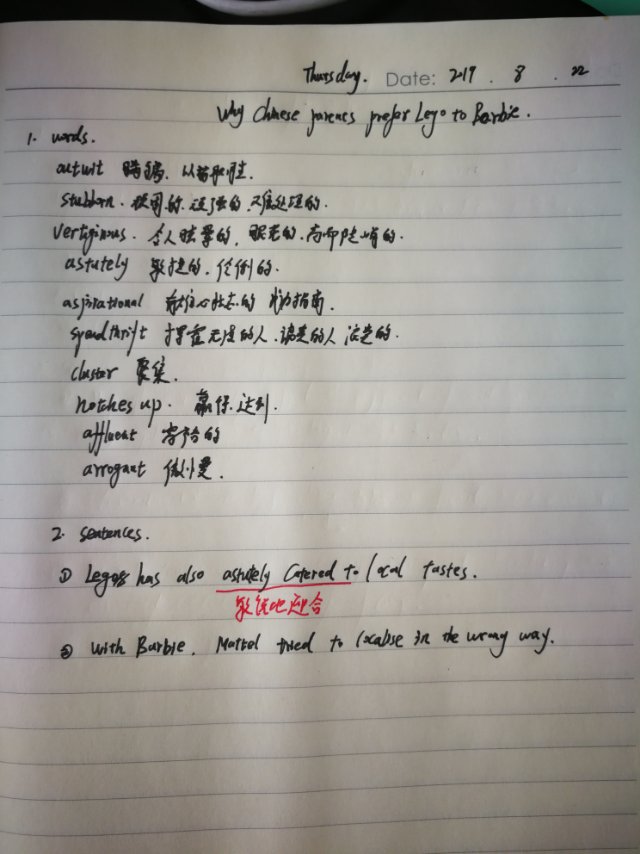 Thursday. Date: 2019 . 8 . 22
Why Chinese parents prefer Lego to Barbie.
1. words.
outwit 以智取胜.
stubborn. 顽固的. 顽强的. 难处理的.
Vertiginous. 令人眩晕的. 眼花的. 高而陡峭的.
astutely 敏捷的.
aspirational
spendthrift 挥霍无度的人.
cluster 聚集.
notches up. 赢得. 达到.
affluent 富裕的
arrogant 傲慢.
2. sentences.
① Legos has also astutely catered to local tastes.
敏锐地迎合
② With Barbie, Mattel tried to localise in the wrong way.